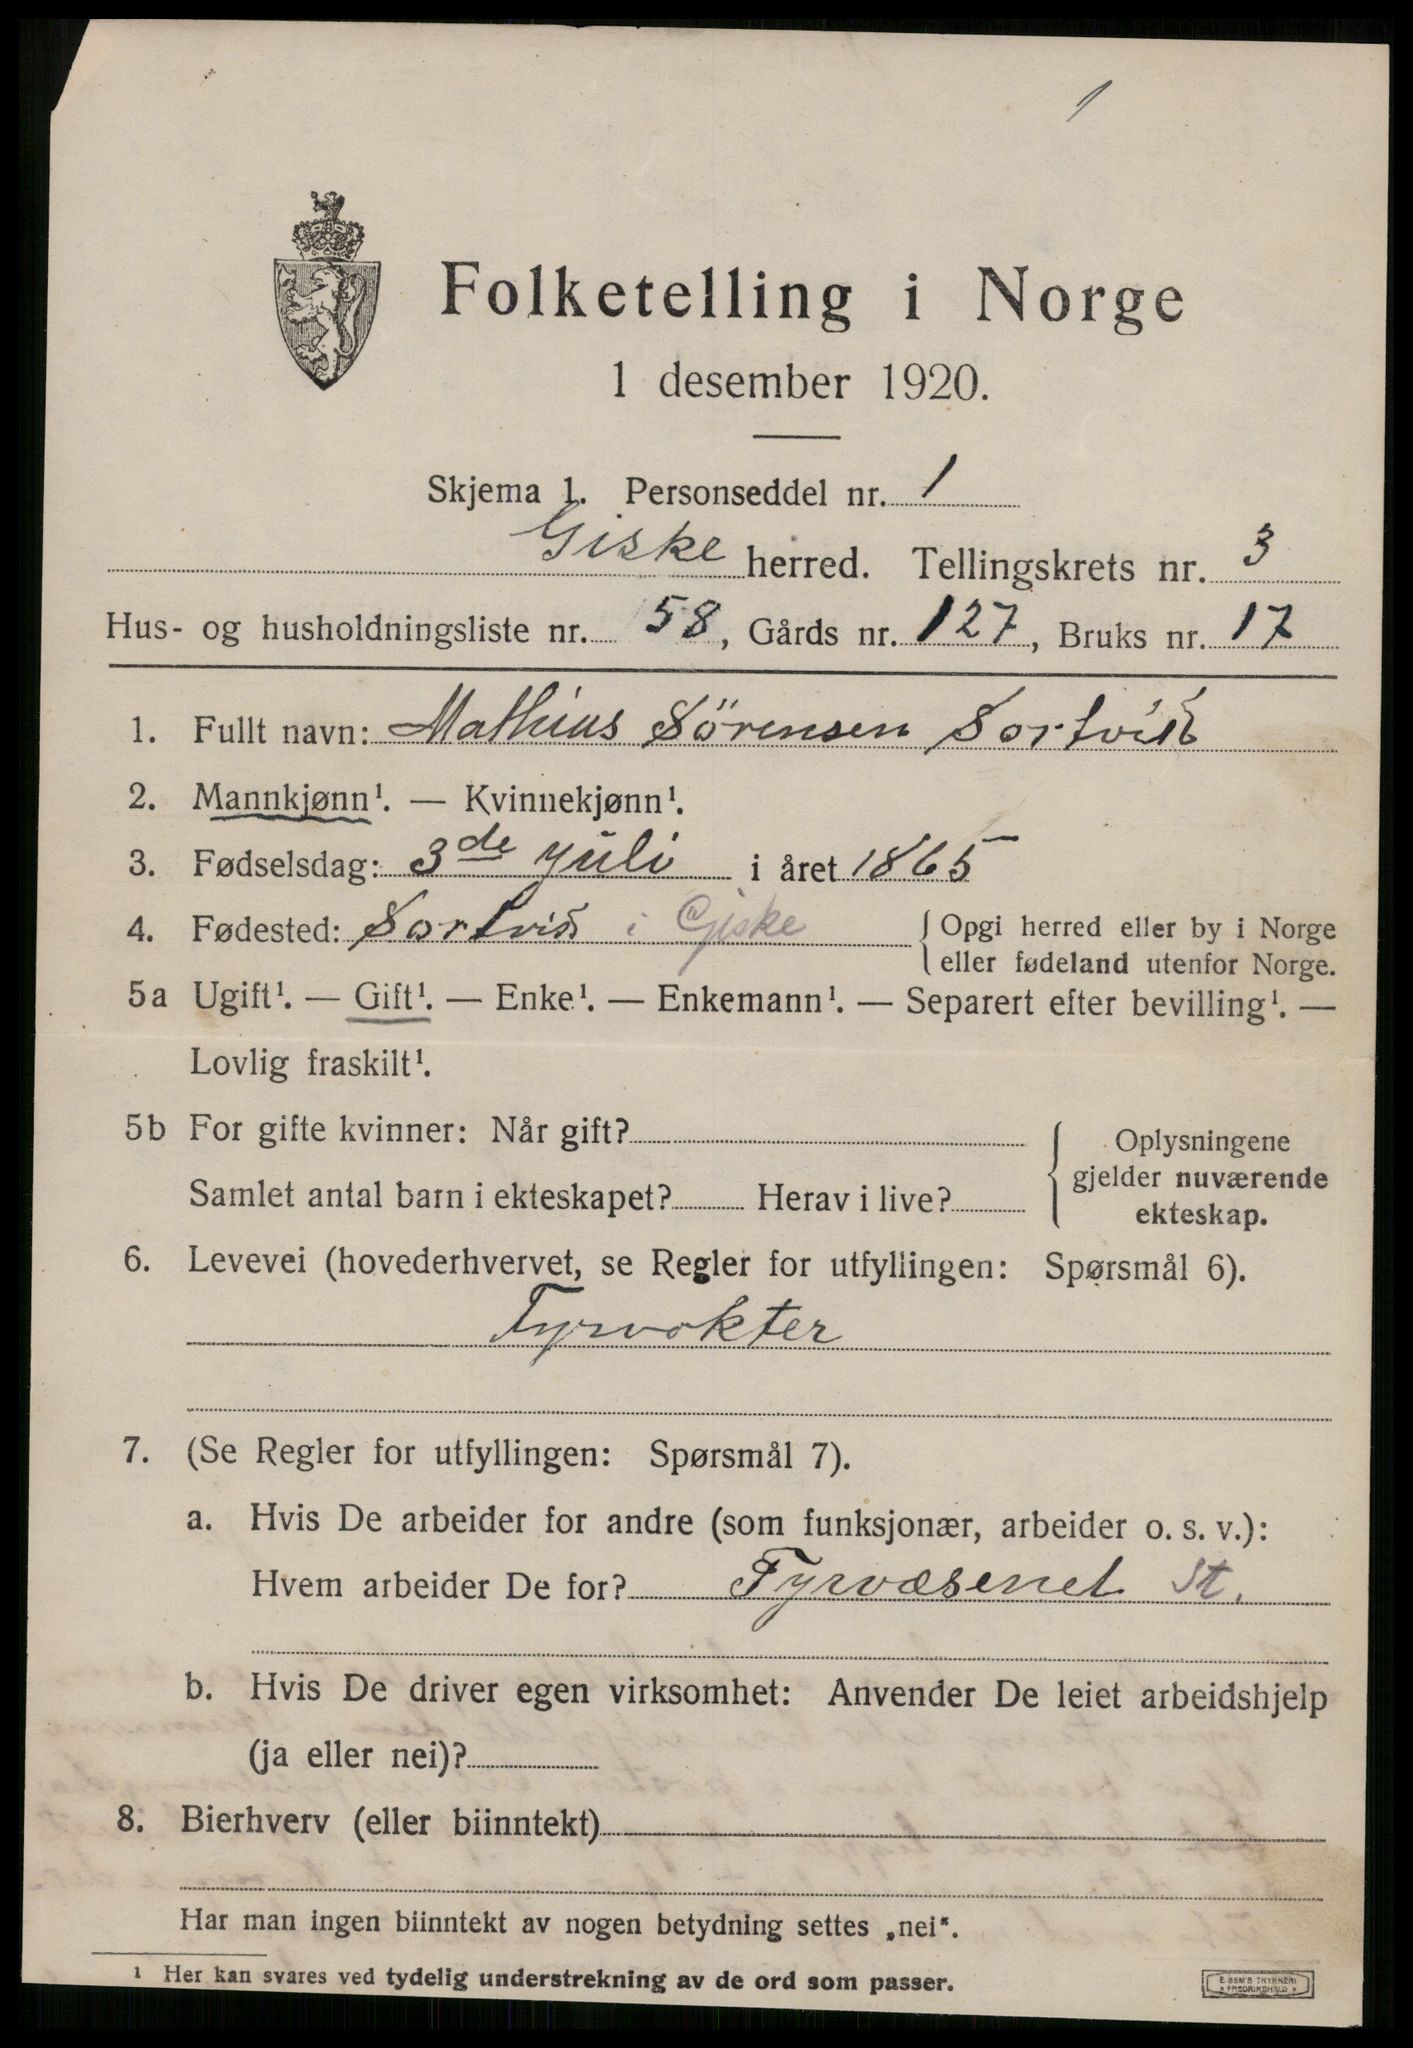 1
Folketelling i Norge
1 desember 1920.
Skjema 1. Personseddel nr. 1
Giske herred. Tellingskrets nr. 3
Hus- og husholdningsliste nr. 58, Gårds nr. 127, Bruks nr. 17
1. Fullt navn: Mathias Sörensen Sortvik
2. Mannkjønn¹. — Kvinnekjønn¹.
3. Fødselsdag: 3de juli i året 1865
4. Fødested: Sortvik i Giske { Opgi herred eller by i Norge
eller fødeland utenfor Norge.
5a Ugift¹. — Gift¹. — Enke¹. — Enkemann¹. — Separert efter bevilling¹. —
Lovlig fraskilt¹.
5b For gifte kvinner: Når gift?
Samlet antal barn i ekteskapet? Herav i live?
{ Oplysningene
gjelder nuværende
ekteskap.
6. Levevei (hovederhvervet, se Regler for utfyllingen: Spørsmål 6).
Fyrvokter
7. (Se Regler for utfyllingen: Spørsmål 7).
a. Hvis De arbeider for andre (som funksjonær, arbeider o. s. v.):
Hvem arbeider De for? Fyrvæsenet St.
b. Hvis De driver egen virksomhet: Anvender De leiet arbeidshjelp
(ja eller nei)?
8. Bierhverv (eller biinntekt)
Har man ingen biinntekt av nogen betydning settes „nei“.
¹ Her kan svares ved tydelig understrekning av de ord som passer.
E. SEM'S TRYKKERI
* FREDRIKSHALD *